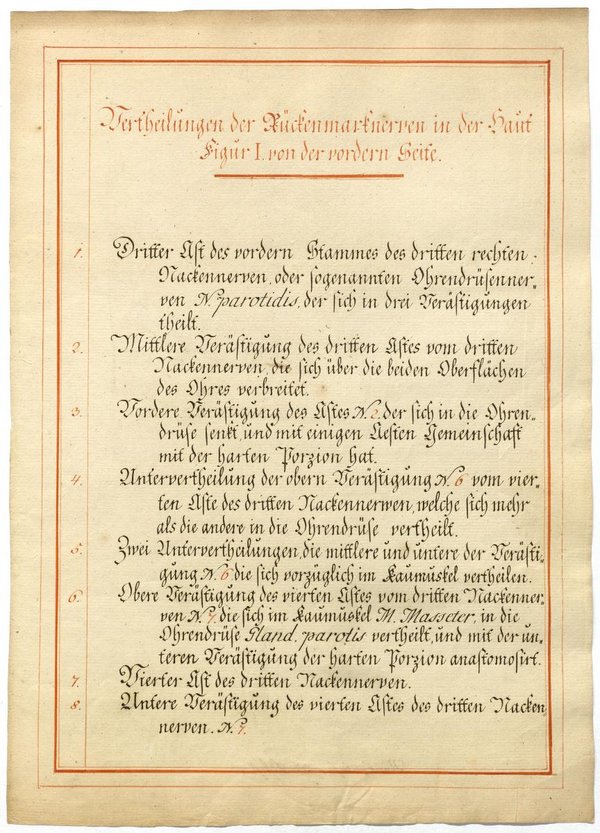 Vertheilungen der Rückenmarknerven in der Haut
Figur I. von der vordern Seite.
1. Dritter Ast des vordern Stammes des dritten rechten
Nackennerven, oder sogenannten Ohrendrüsenner=
ven N. parotidis, der sich in drei Verästigungen
theilt.
2. Mittlere Verästigung des dritten Astes vom dritten
Nackennerven, die sich über die beiden Oberflächen
des Ohres verbreitet.
3. Vordere Verästigung des Astes N. 2. der sich in die Ohren=
drüse senkt, und mit einigen Aesten Gemeinschaft
mit der harten Porzion hat.
4. Untervertheilung der obern Verästigung N. 6 vom vier=
ten Aste des dritten Nackennerven, welche sich mehr
als die andere in die Ohrendrüse vertheilt.
5. Zwei Untervertheilungen, die mittlere und untere der Verästi=
gung N. 6 die sich vorzüglich im Kaumuskel vertheilen.
6. Obere Verästigung des vierten Astes vom dritten Nackenner=
ven N. 7. die sich im Kaumuskel M. Masseter, in die
Ohrendrüse Gland. parotis vertheilt, und mit der un=
teren Verästigung der harten Porzion anastomosirt.
7. Vierter Ast des dritten Nackennerven.
8. Untere Verästigung des vierten Astes des dritten Nacken=
nerven. N. 7.